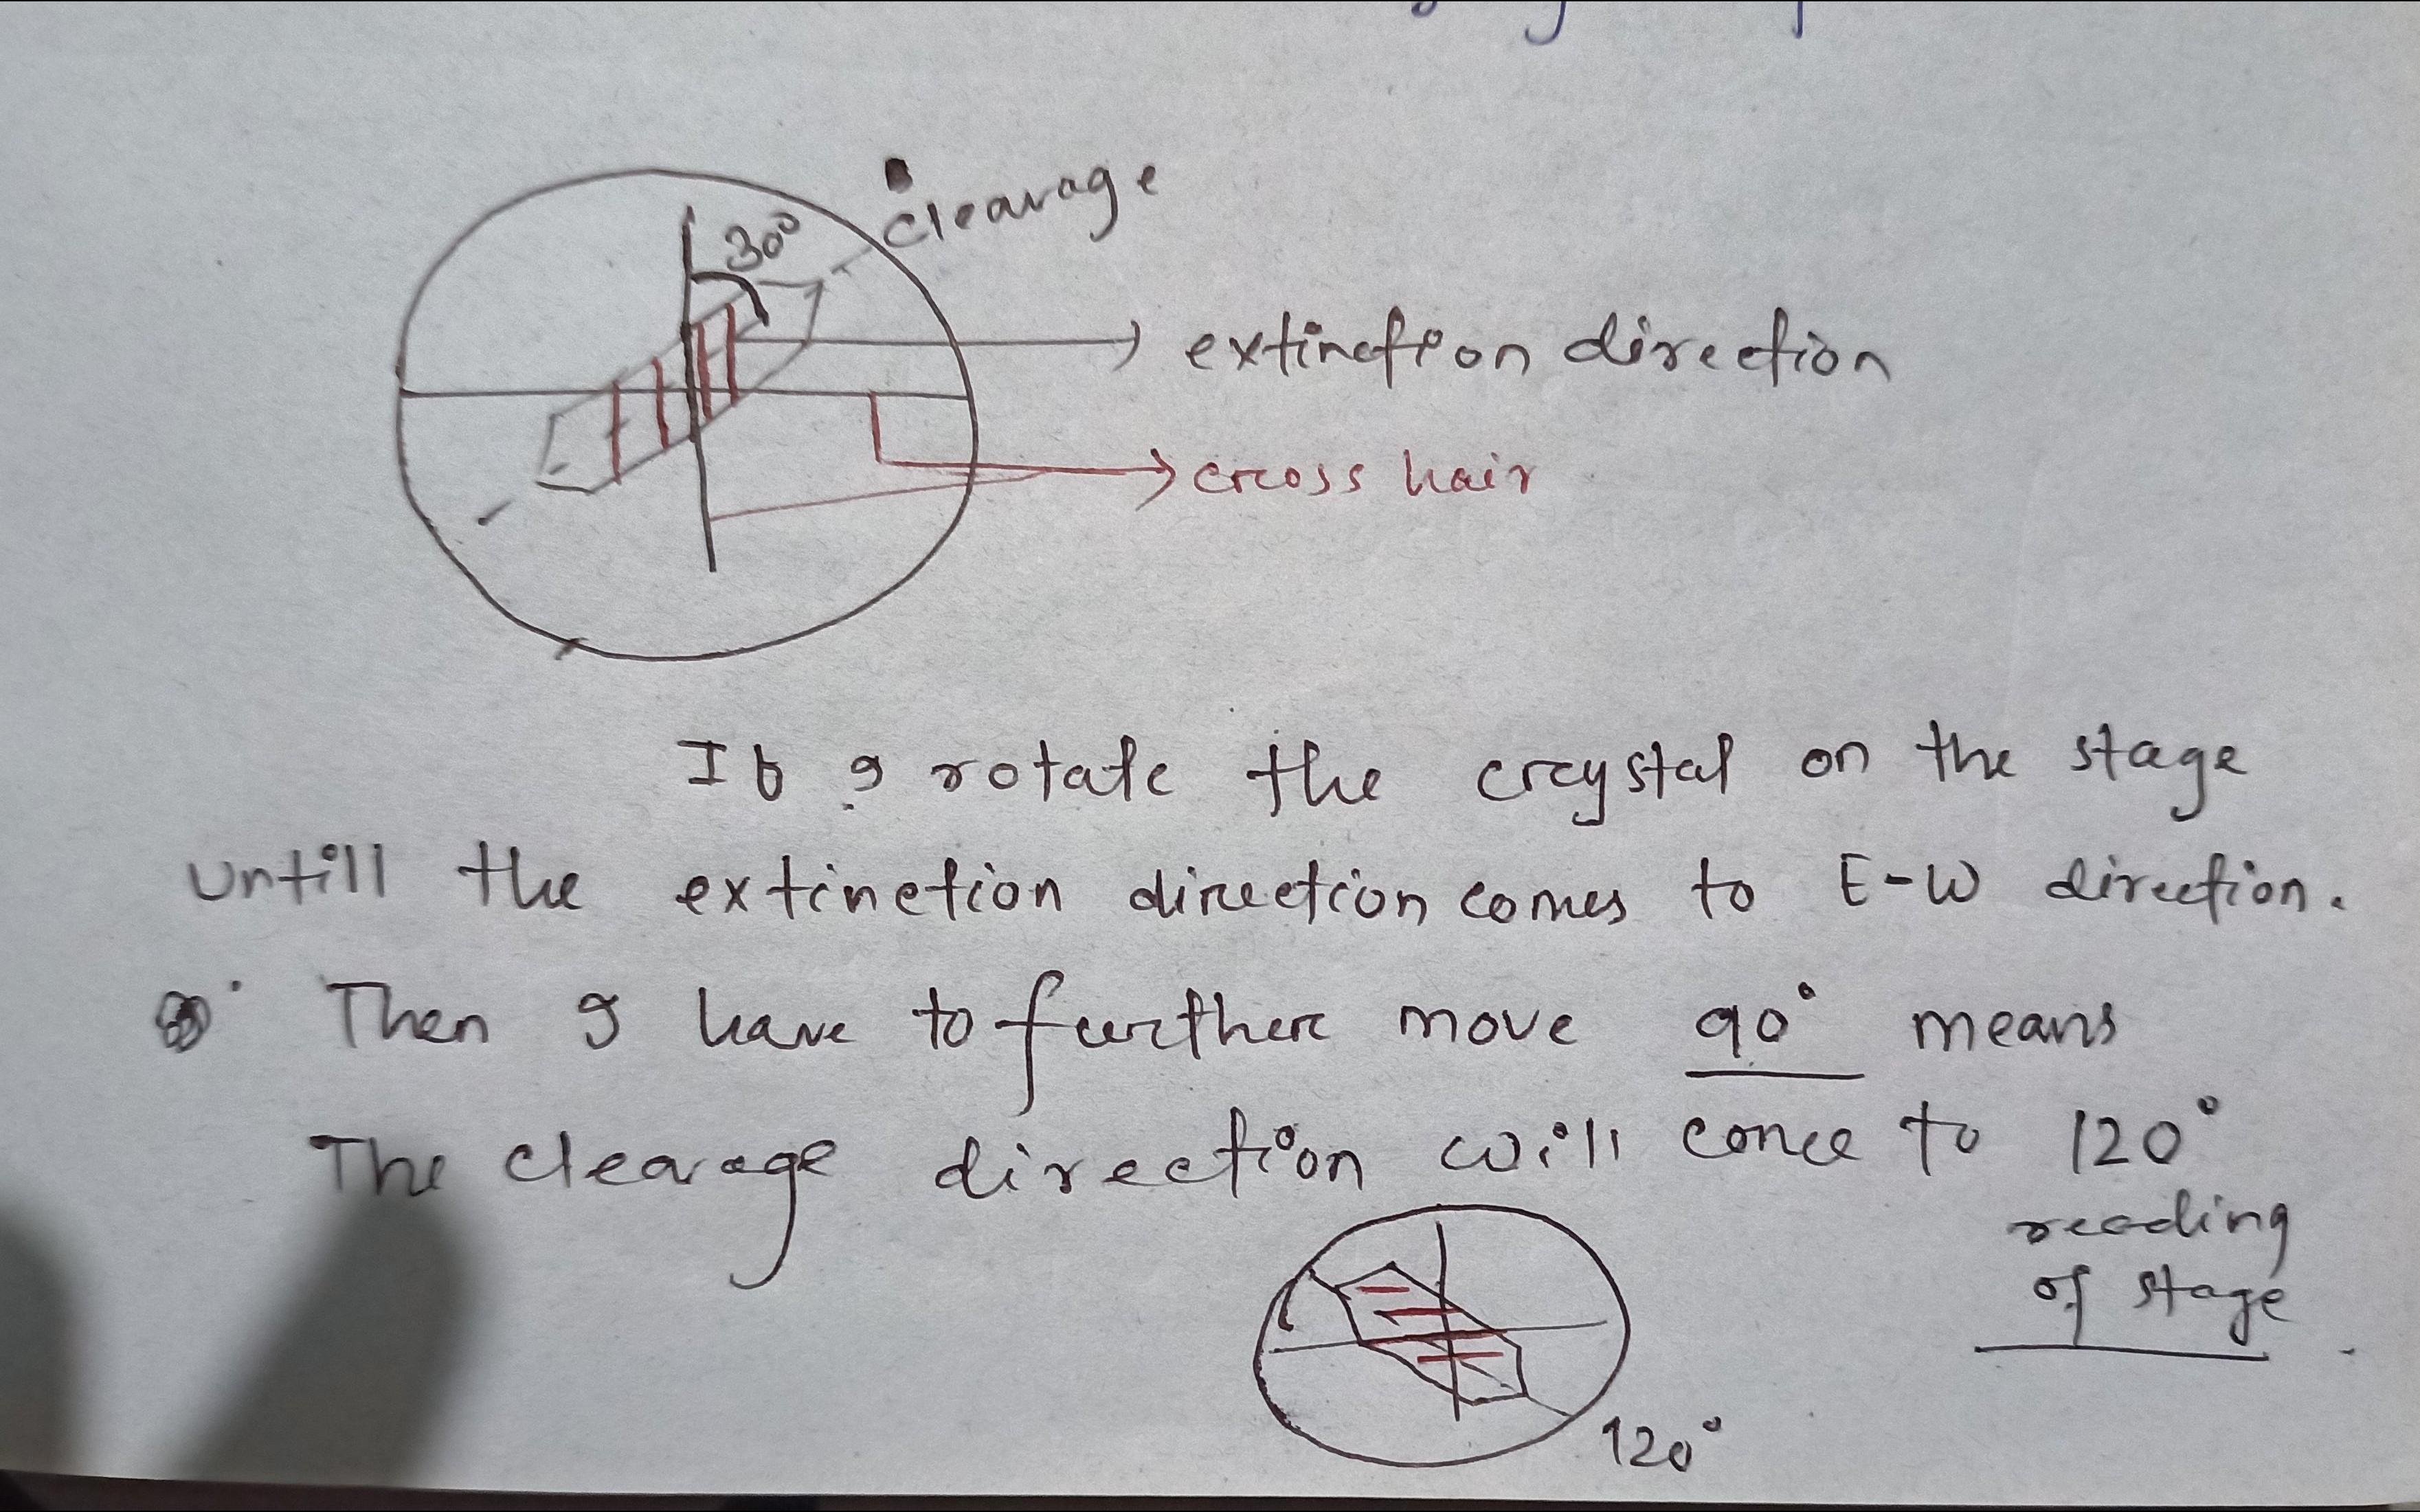 cleavage
30°
extinction direction
cross hair
If I rotate the crystal on the stage
untill the extinction direction comes to E-W direction.
Then I have to further move 90° means
The cleavage direction will come to 120°
reading
of stage
120°